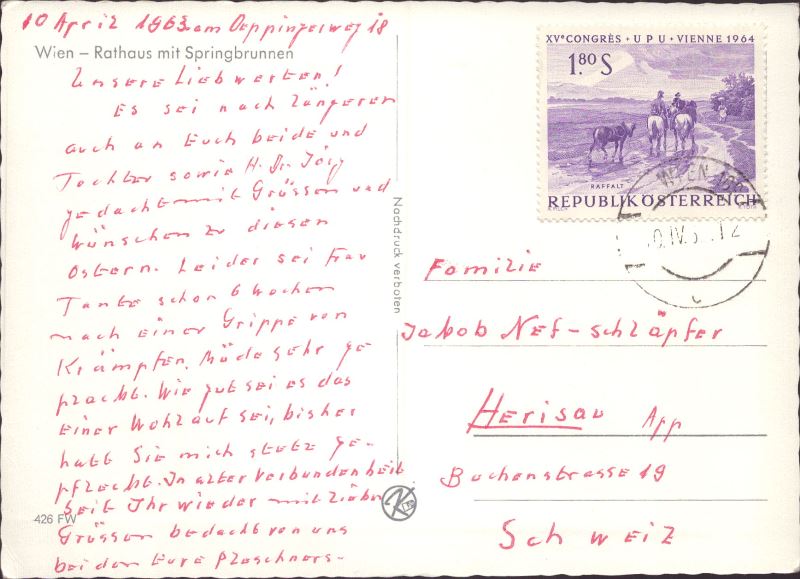 10 April 1963 am Oeppingerweg 18
Wien – Rathaus mit Springbrunnen
Unsere Liebwerten!
Es sei nach längerem
auch an Euch beide und
Tochter sowie H. Dr. Jörg
gedacht mit Grüssen und
wünschen zu diesen
Ostern. Leider sei Frau
Tante schon 6 Wochen
nach einer Grippe von
Krämpfen, Müde sehr ge
plackt. Wie gut sei es das
einer Wohlauf sei, bisher
hatt Sie mich stetz ge-
pflegt. In alter Verbundenheit
Seit Ihr wieder mit
Grüssen bedacht von uns
beiden Eure Ploschners-
426 FW
Nachdruck verboten
XVe CONGRÈS • UPU • VIENNE 1964
1.80 S
RAFFALT
REPUBLIK ÖSTERREICH
WIEN
Familie
Jakob Nef-Schläpfer
Herisau App
Buchenstrasse 19
Schweiz